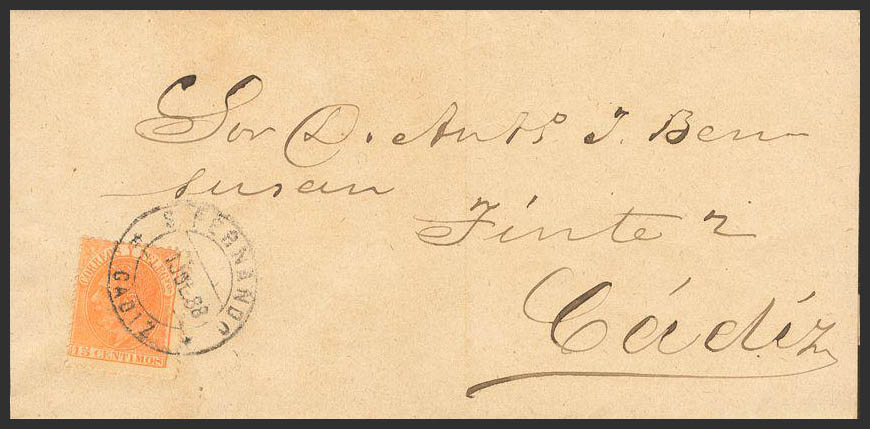 Sor D. Antº J. Ben-
susan
Tinte 2
Cádiz
S. FERNANDO
JUL 88
CADIZ
CORREOS Y TELEGFOS
15 CENTIMOS